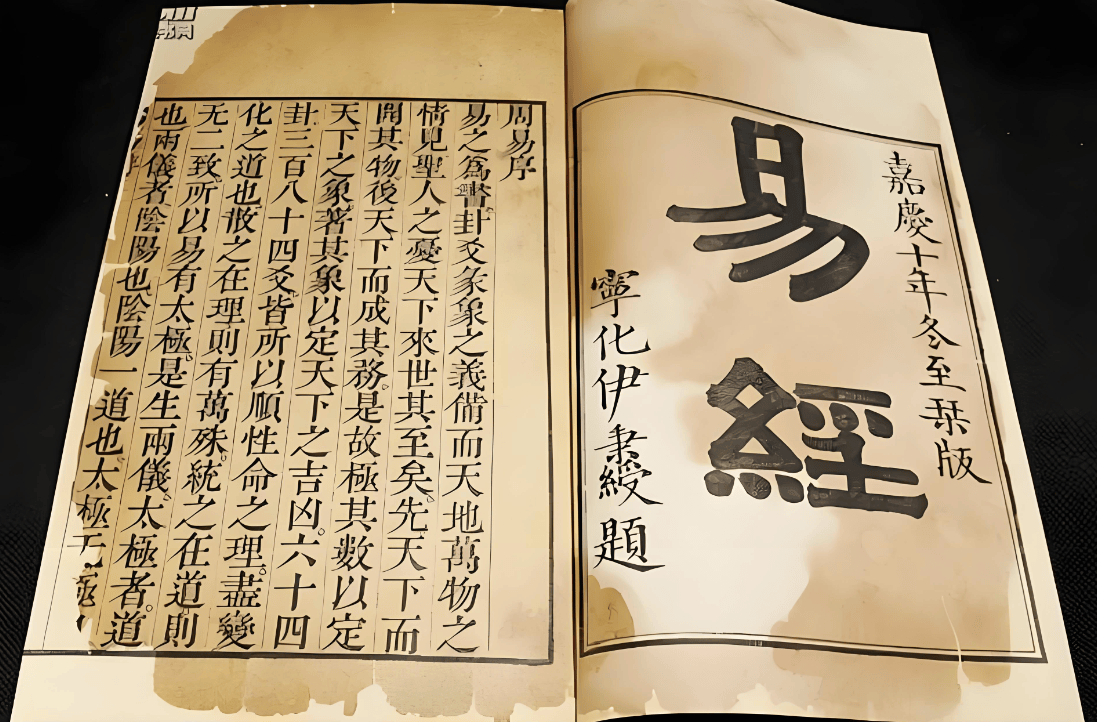 嘉慶十年冬至栞版
易經
寧化伊秉綬題
周易序
易之爲書卦爻彖象之義備而天地萬物之
情見聖人之憂天下來世其至矣。先天下而
開其物後天下而成其務。是故極其數以定
天下之象著其象以定天下之吉凶。六十四
卦三百八十四爻皆所以順性命之理。盡變
化之道也散之在理則有萬殊。統之在道則
无二致。所以易有太極。是生兩儀。太極者。道
也兩儀者陰陽也陰陽一道也太極无極